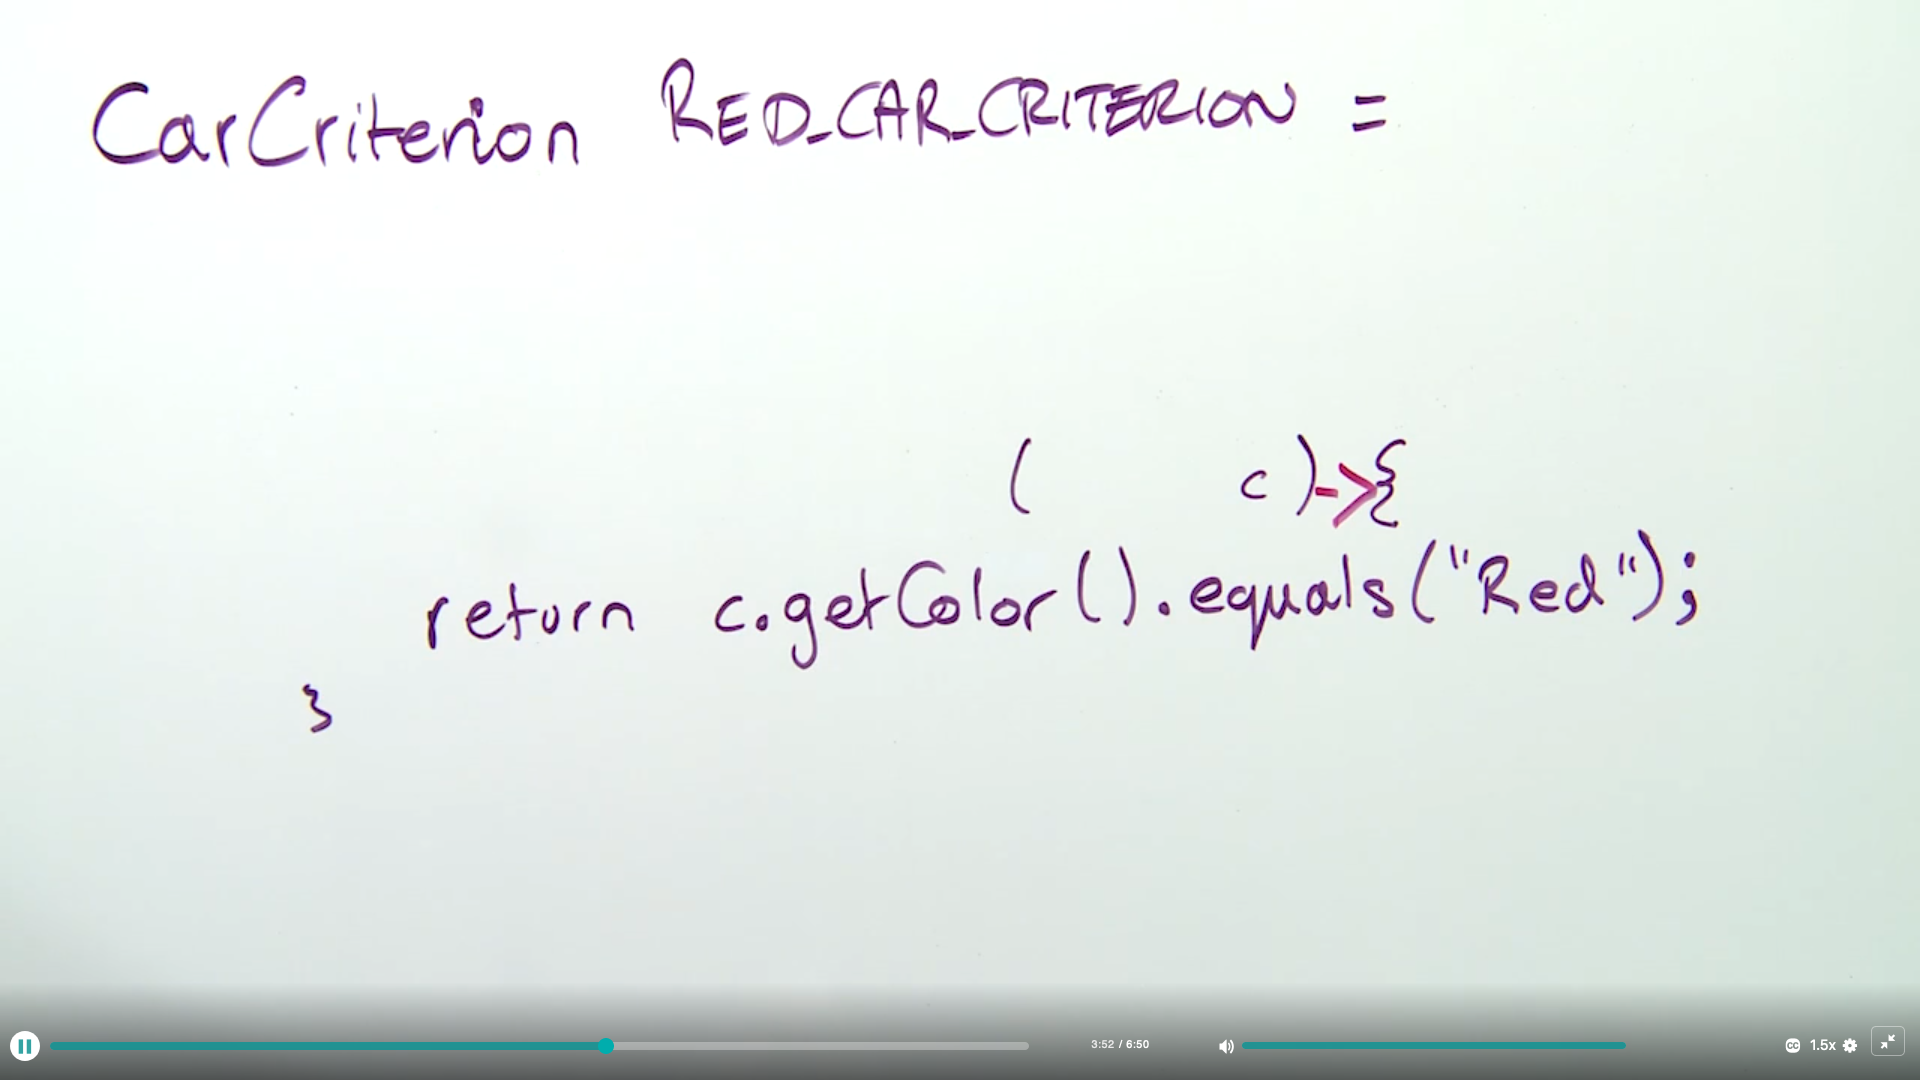 CarCriterion RED_CAR_CRITERION =
( c)->{
return c.getColor().equals("Red");
}
3:52 / 6:50
CC 1.5x